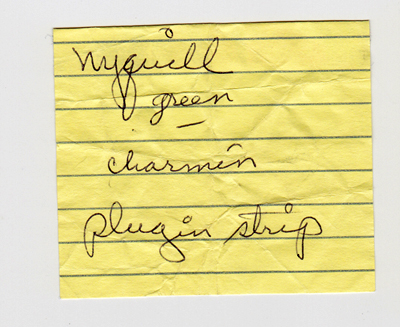 nyquill
green
–
charmin
plugin strip